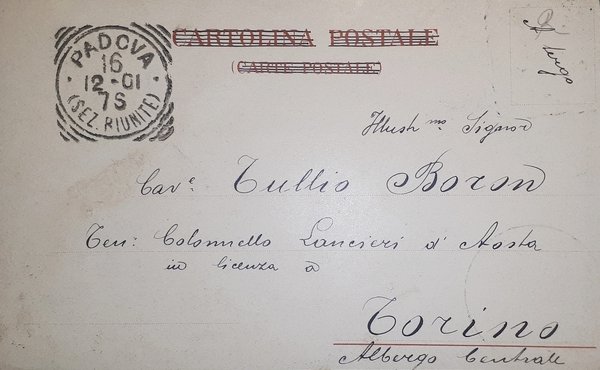 CARTOLINA POSTALE
(CARTE POSTALE)
A tergo
PADOVA
16
12-01
7S
(SEZ. RIUNITE)
Illustmo Signor
Cave. Tullio Boron
Ten: Colonnello Lancieri d'Aosta
in licenza a
Torino
Albergo Centrale